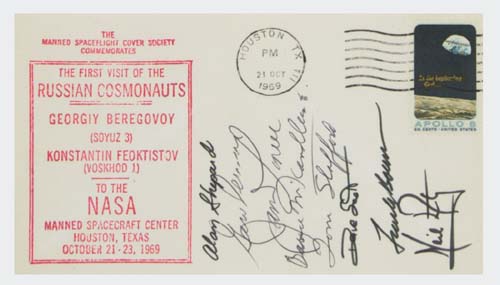 THE
MANNED SPACEFLIGHT COVER SOCIETY
COMMEMORATES
THE FIRST VISIT OF THE
RUSSIAN COSMONAUTS
GEORGIY BEREGOVOY
(SOYUZ 3)
KONSTANTIN FEOKTISTOV
(VOSKHOD 1)
TO THE
NASA
MANNED SPACECRAFT CENTER
HOUSTON, TEXAS
OCTOBER 21-23, 1969
HOUSTON, TX
PM
21 OCT
1969
In the beginning
God...
APOLLO 8
SIX CENTS · UNITED STATES
Alan Shepard
Gene Cernan
Bruce McCandless
Tom Stafford
Dave Scott
Neil